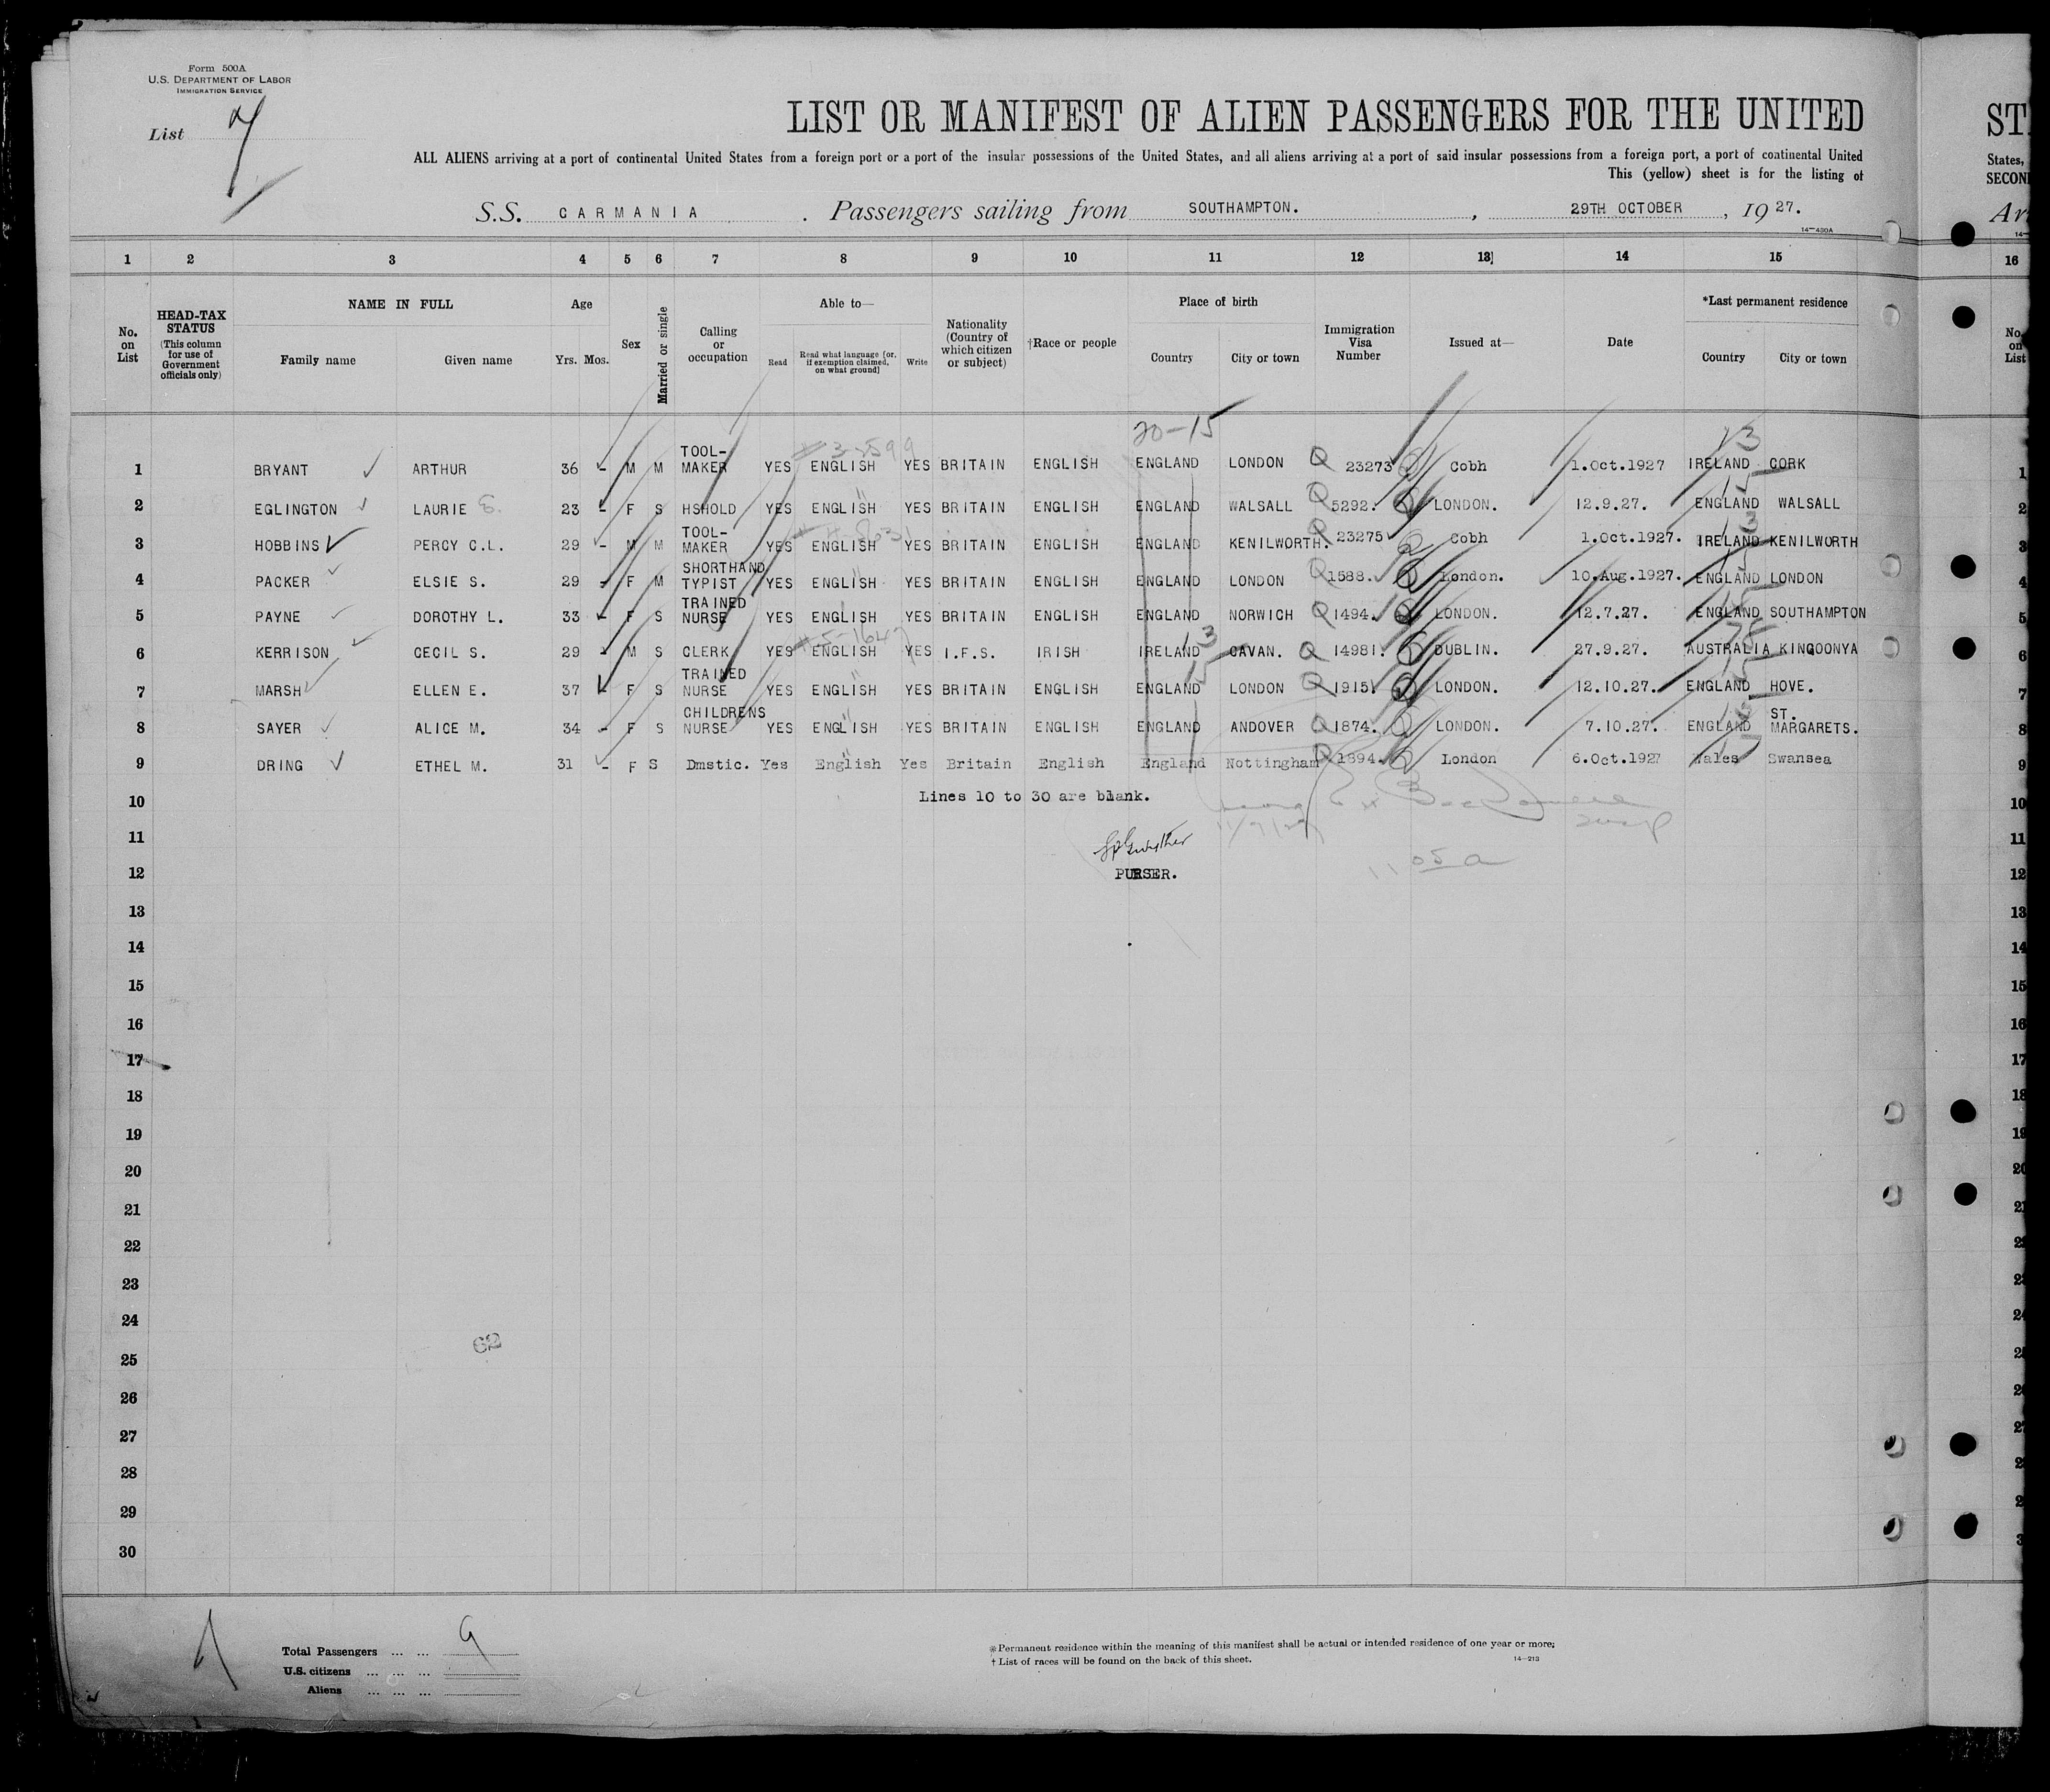 Form 500A
U.S. DEPARTMENT OF LABOR
IMMIGRATION SERVICE
List 7
LIST OR MANIFEST OF ALIEN PASSENGERS FOR THE UNITED
ALL ALIENS arriving at a port of continental United States from a foreign port or a port of the insular possessions of the United States, and all aliens arriving at a port of said insular possessions from a foreign port, a port of continental United
This (yellow) sheet is for the listing of
S.S. CARMANIA . Passengers sailing from SOUTHAMPTON. , 29TH OCTOBER , 1927.
14—430A
1 2 3 4 5 6 7 8 9 10 11 12 13 14 15
No. on List
HEAD-TAX STATUS (This column for use of Government officials only)
NAME IN FULL
Family name Given name
Age
Yrs. Mos.
Sex
Married or single
Calling or occupation
Able to—
Read Read what language [or, if exemption claimed, on what ground] Write
Nationality (Country of which citizen or subject)
†Race or people
Place of birth
Country City or town
Immigration Visa Number
Issued at—
Date
*Last permanent residence
Country City or town
20-15
1 BRYANT ARTHUR 36 - M M TOOL-MAKER YES ENGLISH YES BRITAIN ENGLISH ENGLAND LONDON Q 23273 Cobh 1.Oct.1927 IRELAND CORK
2 EGLINGTON LAURIE E. 23 - F S HSHOLD YES ENGLISH YES BRITAIN ENGLISH ENGLAND WALSALL Q 5292. LONDON. 12.9.27. ENGLAND WALSALL
3 HOBBINS PERCY C.L. 29 - M M TOOL-MAKER YES ENGLISH YES BRITAIN ENGLISH ENGLAND KENILWORTH. Q 23275 Cobh 1.Oct.1927. IRELAND KENILWORTH
4 PACKER ELSIE S. 29 - F M SHORTHAND TYPIST YES ENGLISH YES BRITAIN ENGLISH ENGLAND LONDON Q 1588. London. 10.Aug.1927. ENGLAND LONDON
5 PAYNE DOROTHY L. 33 - F S TRAINED NURSE YES ENGLISH YES BRITAIN ENGLISH ENGLAND NORWICH Q 1494. LONDON. 12.7.27. ENGLAND SOUTHAMPTON
6 KERRISON CECIL S. 29 - M S CLERK YES ENGLISH YES I.F.S. IRISH IRELAND CAVAN. Q 14981. DUBLIN. 27.9.27. AUSTRALIA KINGOONYA
7 MARSH ELLEN E. 37 - F S TRAINED NURSE YES ENGLISH YES BRITAIN ENGLISH ENGLAND LONDON Q 1915. LONDON. 12.10.27. ENGLAND HOVE.
8 SAYER ALICE M. 34 - F S CHILDRENS NURSE YES ENGLISH YES BRITAIN ENGLISH ENGLAND ANDOVER Q 1874. LONDON. 7.10.27. ENGLAND ST. MARGARETS.
9 DRING ETHEL M. 31 - F S Dmstic. Yes English Yes Britain English England Nottingham Q 1894. London 6.Oct.1927 Wales Swansea
10 Lines 10 to 30 are blank.
11
12 PURSER.
13
14
15
16
17
18
19
20
21
22
23
24
25
26
27
28
29
30
62
Total Passengers ... ... 9
U.S. citizens ... ... ...
Aliens ... ... ...
*Permanent residence within the meaning of this manifest shall be actual or intended residence of one year or more.
† List of races will be found on the back of this sheet.
14—213
States,
16
No. on List